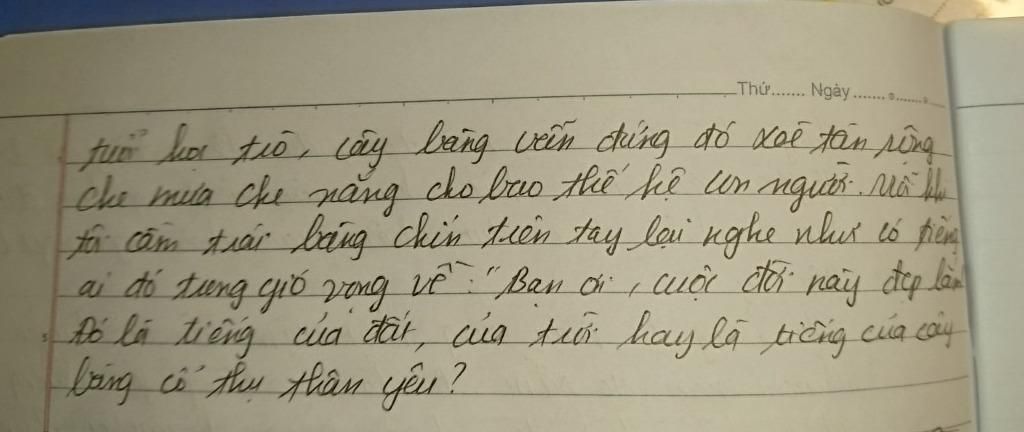 Thứ....... Ngày...............
tuổi học trò, cây bàng vẫn đứng đó xoè tán rộng
che mưa che nắng cho bao thế hệ con người. Mỗi khi
tôi cầm trái bàng chín trên tay lại nghe như có tiếng
ai đó trong gió vọng về: "Bạn ơi, cuộc đời này đẹp lắm
Đó là tiếng của đất, của trời hay là tiếng của cây
bàng cổ thụ thân yêu?